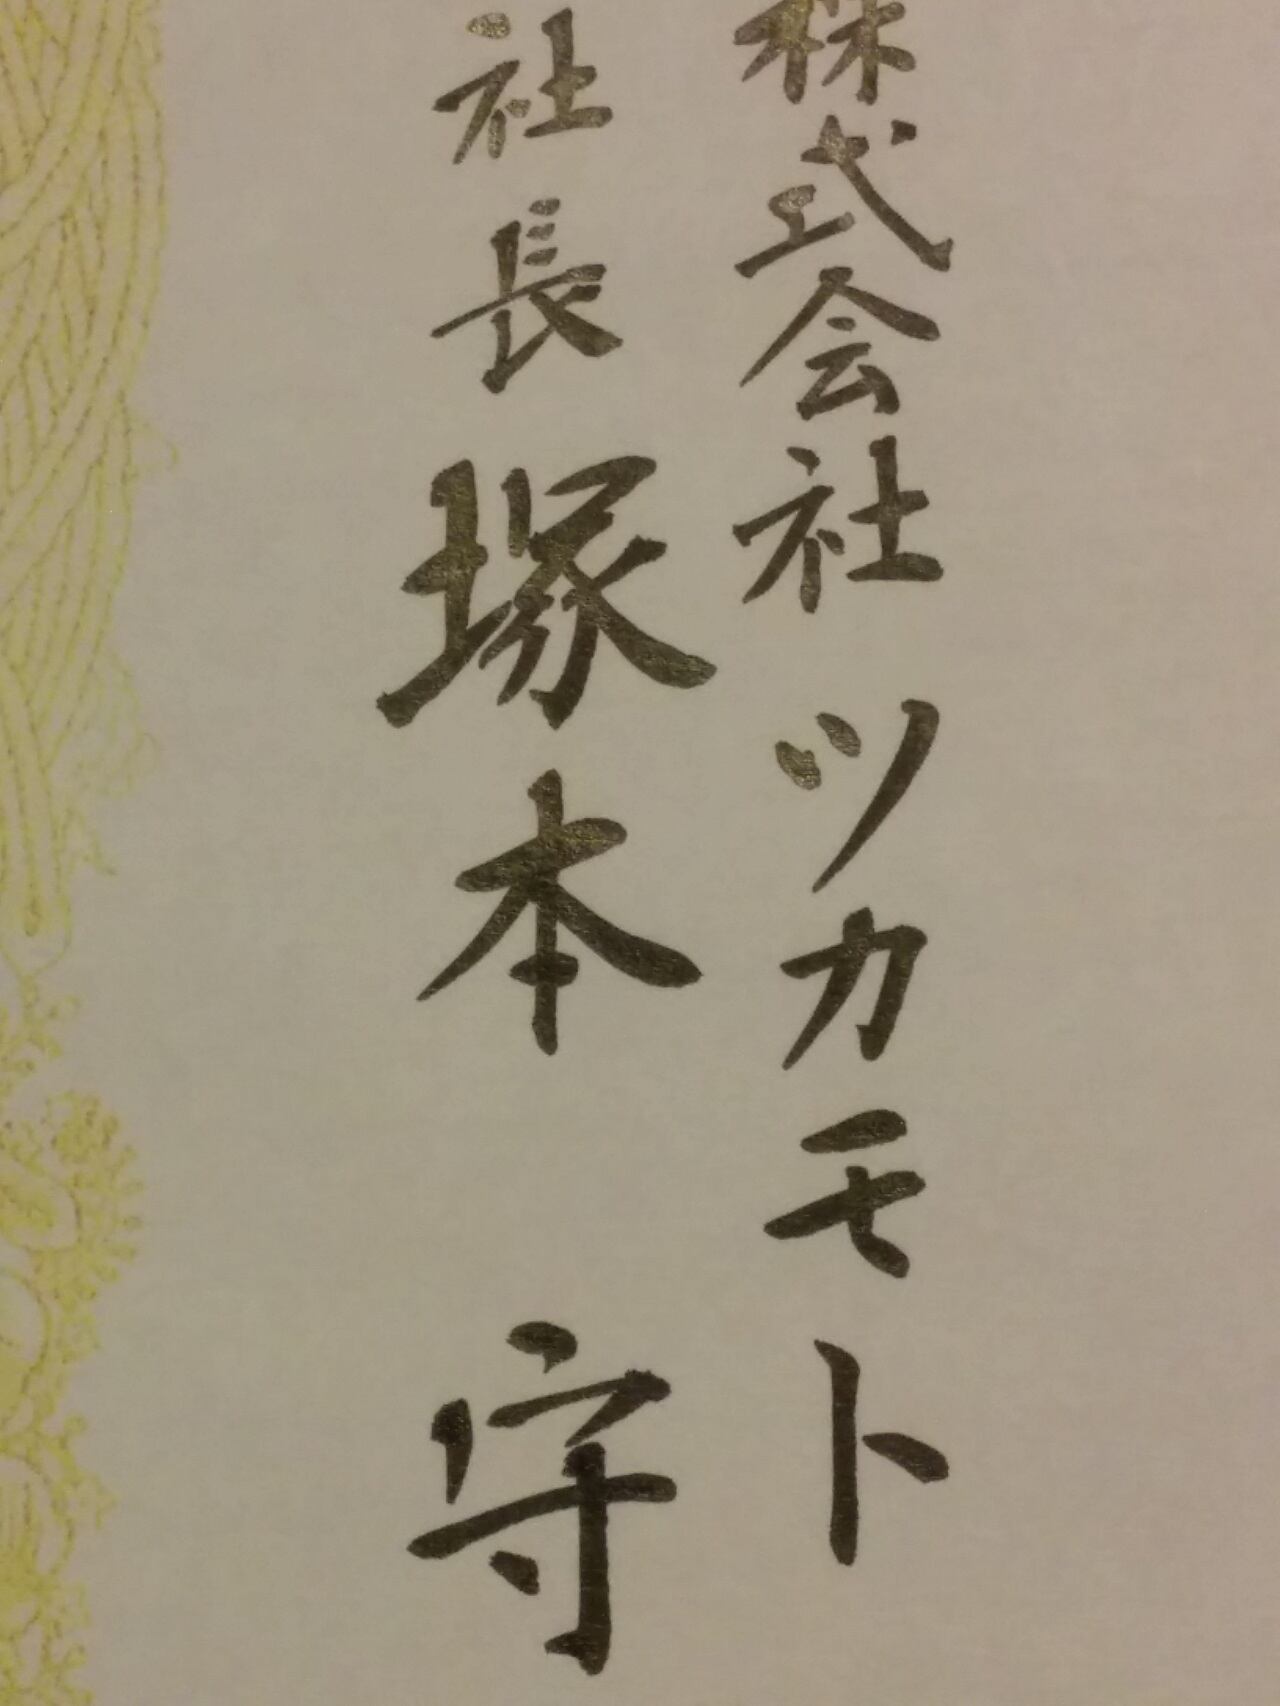 株式会社ツカモト
社長 塚本 守